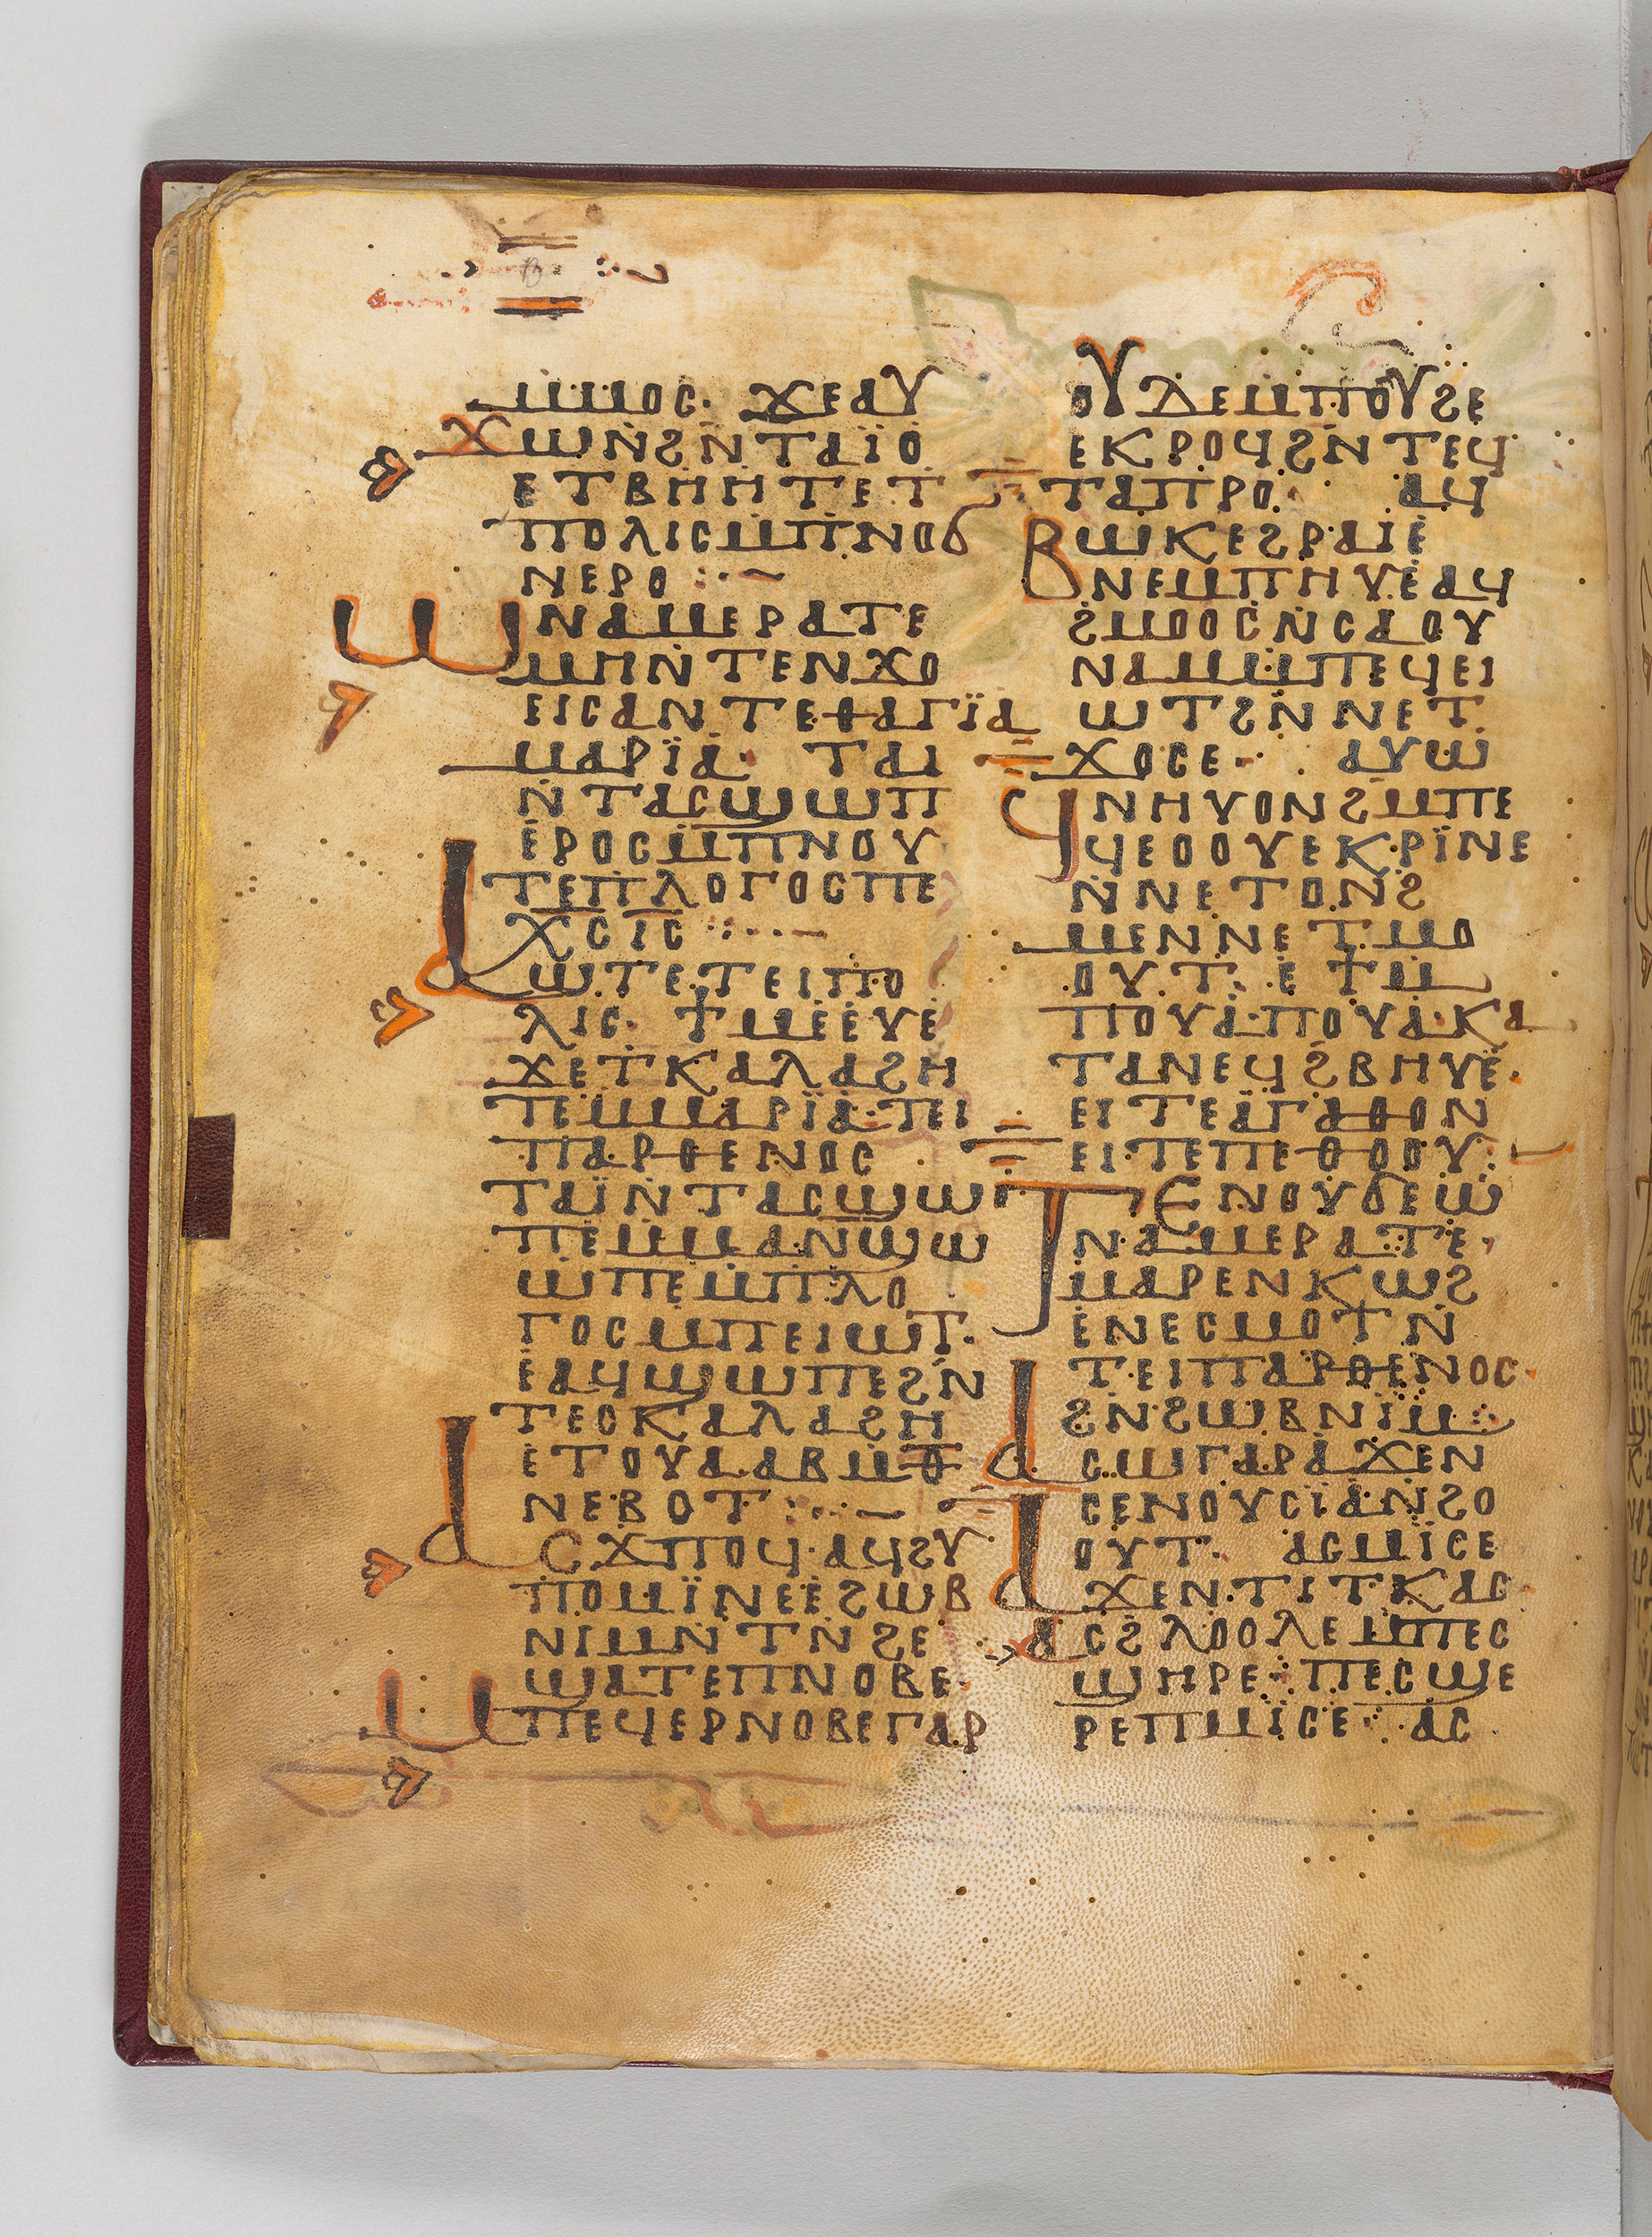 ⲙⲙⲟⲥ· ϫⲉⲁⲩ
ϫⲱⲛ̇ϩⲛ̇ⲧⲁⲓ̈ⲟ
ⲉⲧⲃⲏⲏⲧⲉⲧ
ⲡⲟⲗⲓⲥⲙ̇ⲡⲛⲟϭ
ⲛⲉⲣⲟ
ⲱⲛⲁⲙⲉⲣⲁⲧⲉ
ⲙⲏⲛ̇ⲧⲉⲛϫⲟ
ⲉⲓⲥⲁⲛⲧⲉⲑⲁⲅⲓ̈ⲁ
ⲙⲁⲣⲓ̈ⲁ· ⲧⲁⲓ
ⲛ̇ⲧⲁⲥϣⲱⲡ
ⲉ̇ⲣⲟⲥⲙ̇ⲡⲛⲟⲩ
ⲧⲉⲡⲗⲟⲅⲟⲥⲡⲉ
ⲭ̅ⲥ̅ⲓ̅ⲥ̅
ⲁⲱⲧⲉⲧⲉⲓⲡⲟ
ⲗⲓⲥ· ϯⲙⲉⲉⲩⲉ
ϫⲉⲧⲕⲁⲗⲁϩⲏ
ⲧⲉⲙ̇ⲙⲁⲣⲓ̈ⲁ·ⲧⲉⲓ
ⲡⲁⲣⲑⲉⲛⲟⲥ ·
ⲧⲁⲓ̈ⲛ̇ⲧⲁⲥϣⲱ
ⲡⲉⲙ̇ⲙⲁⲛ̇ϣⲱ
ⲱⲡⲉⲙ̇ⲡⲗⲟ
ⲅⲟⲥⲙ̇ⲡⲉⲓⲱⲧ·
ⲉ̇ⲁϥϣⲱⲡⲉϩⲛ̇
ⲧⲉⲟⲕⲁⲗⲁϩⲏ
ⲉⲧⲟⲩⲁⲁⲃⲙ̇ⲑ̅
ⲛⲉⲃⲟⲧ
ⲁⲥϫⲡⲟϥ·ⲁϥϩⲩ
ⲡⲟⲙⲓ̈ⲛⲉⲉ̇ϩⲱⲃ
ⲛⲓⲙⲛ̇ⲧⲛ̇ϩⲉ
ϣⲁⲧⲉⲡⲛⲟⲃⲉ·
ⲙⲡⲉϥⲉⲣⲛⲟⲃⲉⲅⲁⲣ
ⲟⲩⲇⲉⲙ̇ⲡⲟⲩϩⲉ
ⲉⲕⲣⲟϥϩⲛ̇ⲧⲉϥ
ⲧⲁⲡⲣⲟ· ⲁϥ
ⲃⲱⲕⲉϩⲣⲁⲓ̈ⲉ̇
ⲛⲉⲙⲡⲏⲩⲉ̇ⲁϥ
ϩⲙⲟⲟⲥⲛ̇ⲥⲁⲟⲩ
ⲛⲁⲙⲙ̇ⲡⲉϥⲉⲓ
ⲱⲧϩⲛ̇ⲛⲉⲧ
ϫⲟⲥⲉ· ⲁⲩⲱ
ϥⲛⲏⲩⲟⲛϩⲙ̇ⲡⲉ
ϥⲉⲟⲟⲩⲉⲕⲣⲓ̈ⲛⲉ
ⲛ̇ⲛⲉⲧⲟⲛϩ
ⲙⲉⲛⲛⲉⲧⲙⲟ
ⲟⲩⲧ· ⲉ̇ϯⲙ̇
ⲡⲟⲩⲁ·ⲡⲟⲩⲁ·ⲕⲁ
ⲧⲁⲛⲉϥϩⲃⲏⲩⲉ·
ⲉⲓⲧⲉⲁ̈ⲅⲁⲑⲟⲛ
ⲉⲓⲧⲉⲡⲉⲑⲟⲟⲩ
ⲧⲉⲛⲟⲩϭⲉⲱ̇
ⲛⲁⲙⲉⲣⲁⲧⲉ·
ⲙⲁⲣⲉⲛⲕⲱϩ
ⲉ̇ⲛⲉⲥⲙⲟⲧⲛ̇
ⲧⲉⲓⲡⲁⲣⲑⲉⲛⲟⲥ·
ϩⲛ̇ϩⲱⲃⲛⲓ̈ⲙ
ⲁⲥⲱⲅⲁⲣⲁϫⲉⲛ
ⲥⲉⲛⲟⲩⲥⲓ̈ⲁⲛ̇ϩⲟ
ⲟⲩⲧ· ⲁⲥⲙⲓ̈ⲥⲉ
ⲁϫⲉⲛϯⲧⲕⲁⲥ·
ⲁⲥϩⲗⲟⲟⲗⲉⲙ̇ⲡⲉⲥ
ϣⲏⲣⲉ·ⲡⲉⲥϣⲉ
ⲣⲉⲡⲙⲓ̈ⲥⲉ· ⲁⲥ